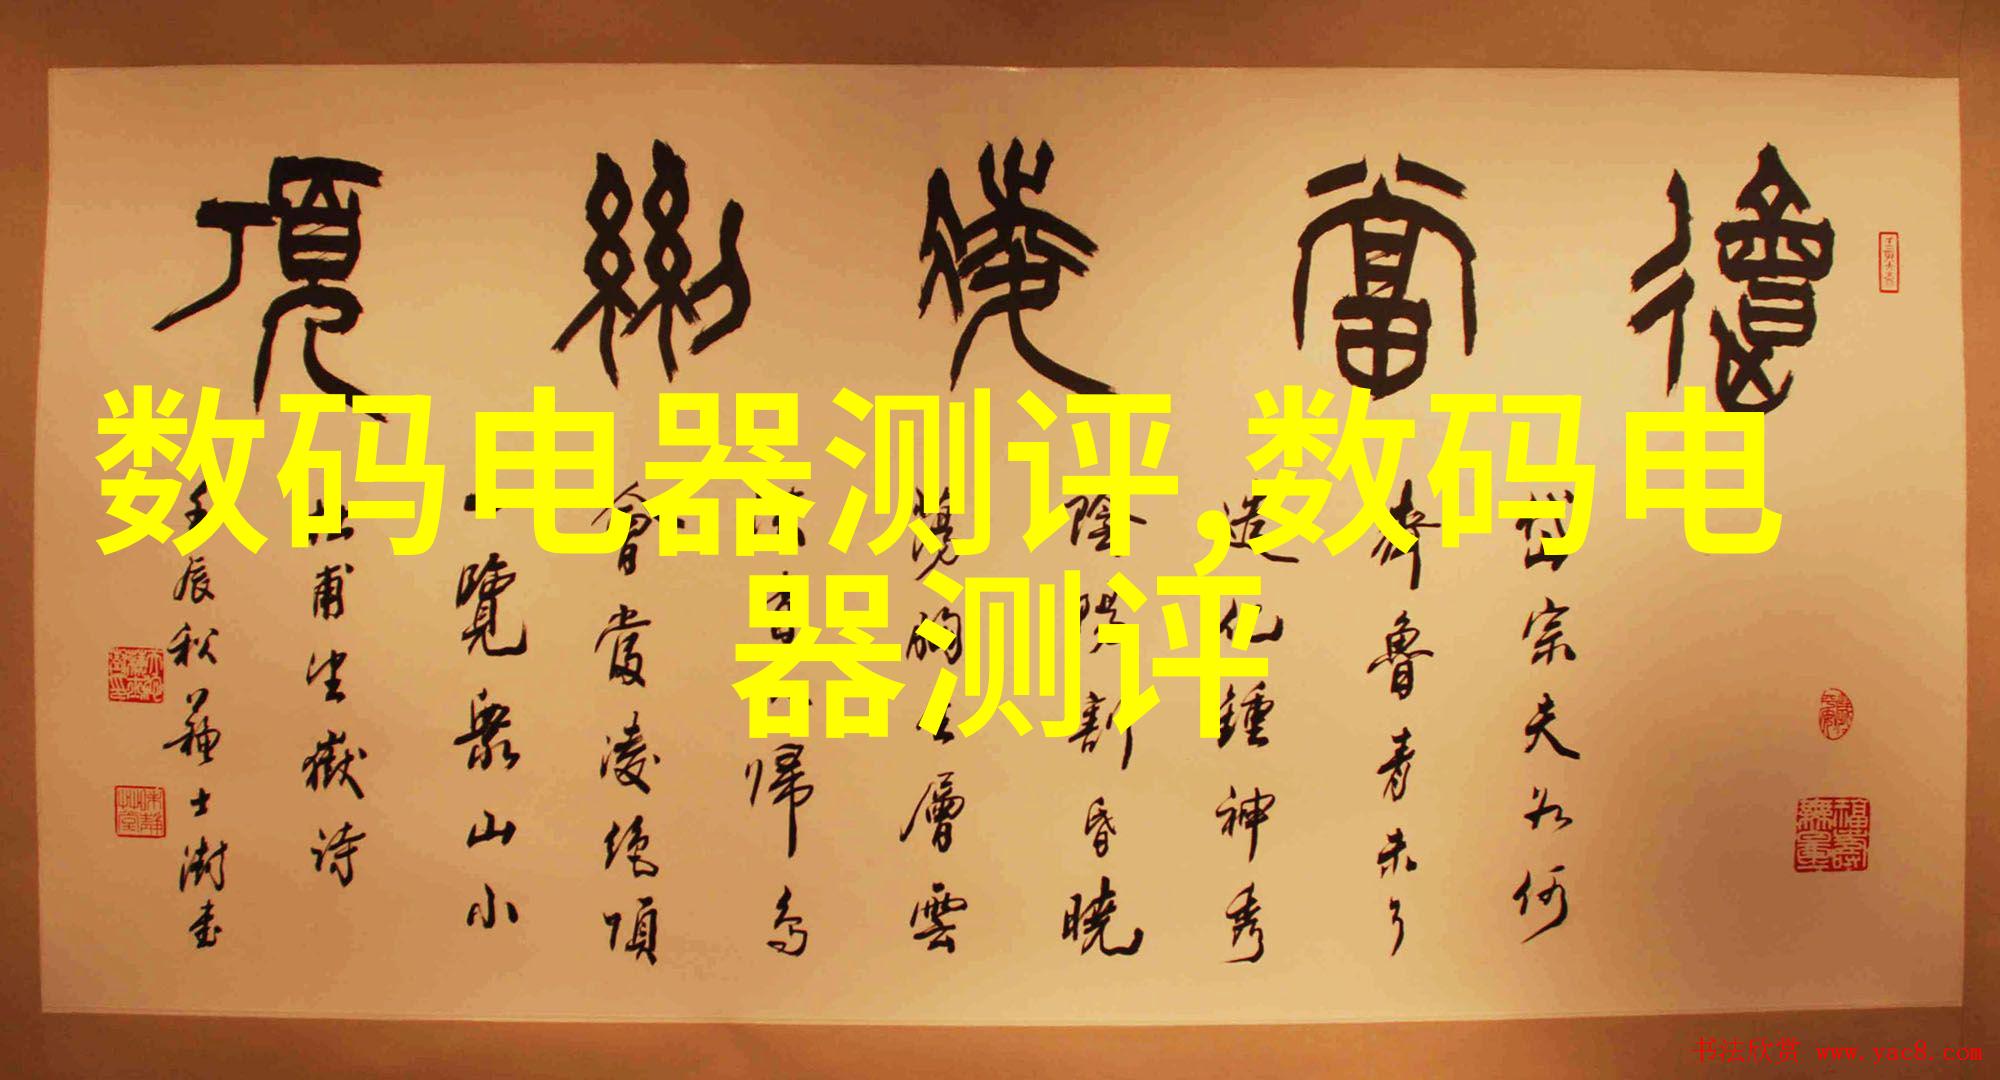 會當凌絕頂
岱宗夫如何
齊魯青未了
造化鍾神秀
陰陽割昏曉
蕩胸生層雲
決眥入歸鳥
會當凌絕頂
一覽衆山小
杜甫望嶽詩
壬辰秋蘇士澍書
福壽無量
数码电器测评,数码电
器测评
书法欣赏 www.yac8.com